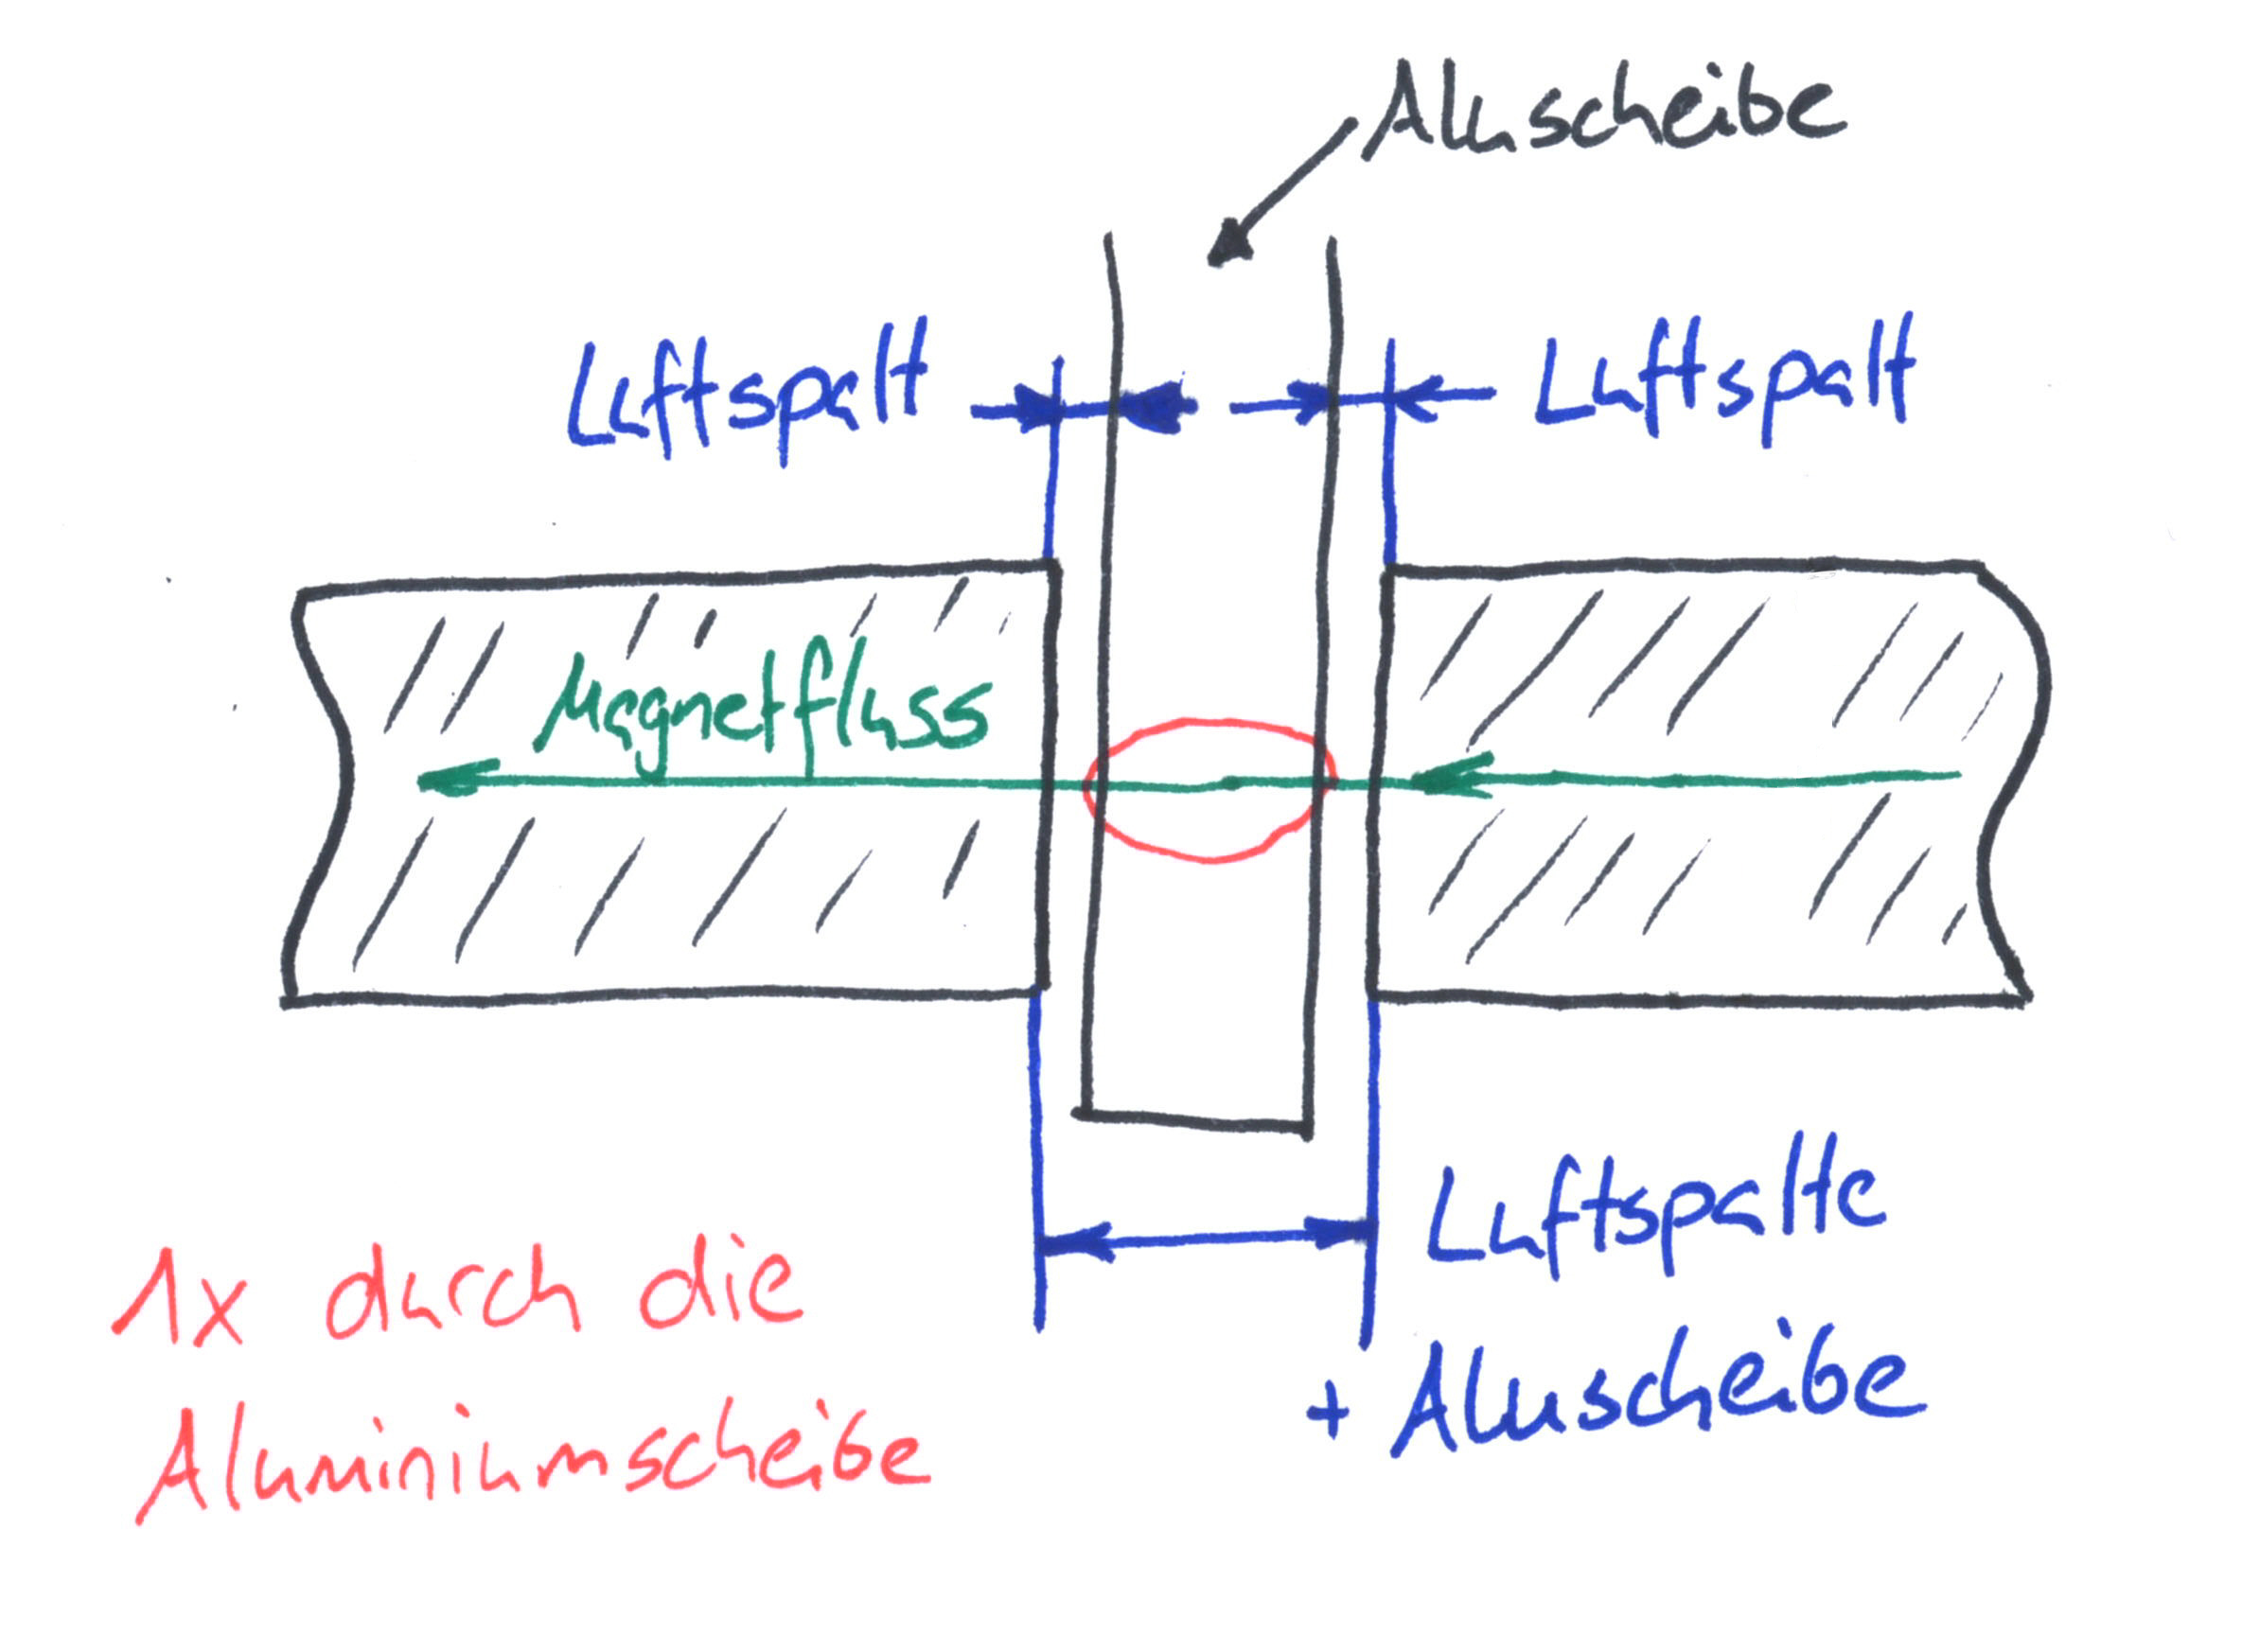 Aluscheibe
Luftspalt
Luftspalt
Magnetfluss
Luftspalte
+ Aluscheibe
1x durch die
Aluminiumscheibe